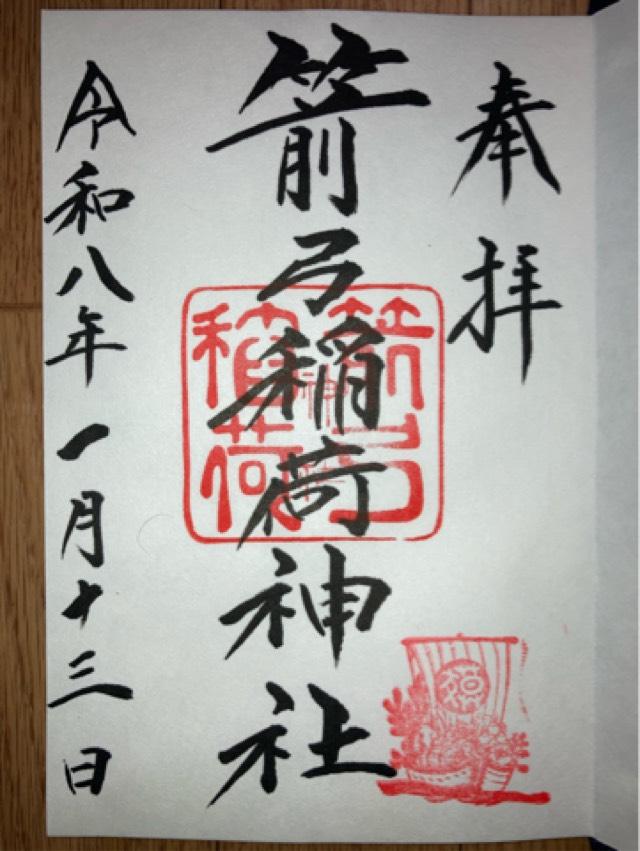 奉拝
箭弓稲荷神社
箭弓
稲荷
令和八年一月十三日